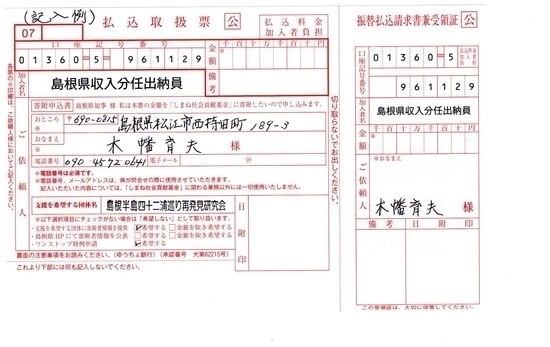 (記入例)
払込取扱票
公
払込料金
加入者負担
07
口座記号番号
01360-5-961129
金額
千百十万千百十円
備考
加入者名
島根県収入分任出納員
寄附申込書
島根県知事 様 私は本書の金額を「しまね社会貢献基金」に寄附したいので申し込みます。
ご依頼人
おところ
〒690-0315
島根県松江市西持田町 189-3
おなまえ
木幡育夫 様
電話番号
090 4572 0641
電子メール
@
*電話番号は必須です。
*電話番号、メールアドレスは、県が問合せの際に使用させていただきます。
記入いただいた内容については、「しまね社会貢献基金」に関わる業務以外には一切使用いたしません。
支援を希望する団体名
島根半島四十二浦巡り再発見研究会
※以下選択項目にチェックがない場合は「希望しない」として取り扱います。
・支援を希望する団体に寄附者情報を提供
希望する
金額を除き希望する
・島根県HPにて寄附者情報を公表
希望する
金額を除き希望する
・ワンストップ特例申請
希望する
日附印
裏面の注意事項をお読みください。(ゆうちょ銀行)(承認番号 大第62215号)
これより下部には何も記入しないでください。
各票の※印欄は、ご依頼人様においてご記入ください。
切り取らないでお出しください。
振替払込請求書兼受領証
公
口座記号番号
01360-5
961129
加入者名
島根県収入分任出納員
金額
千百十万千百十円
ご依頼人
※おなまえ
木幡育夫 様
備考
日附印
この受領証は、大切に保管してください。